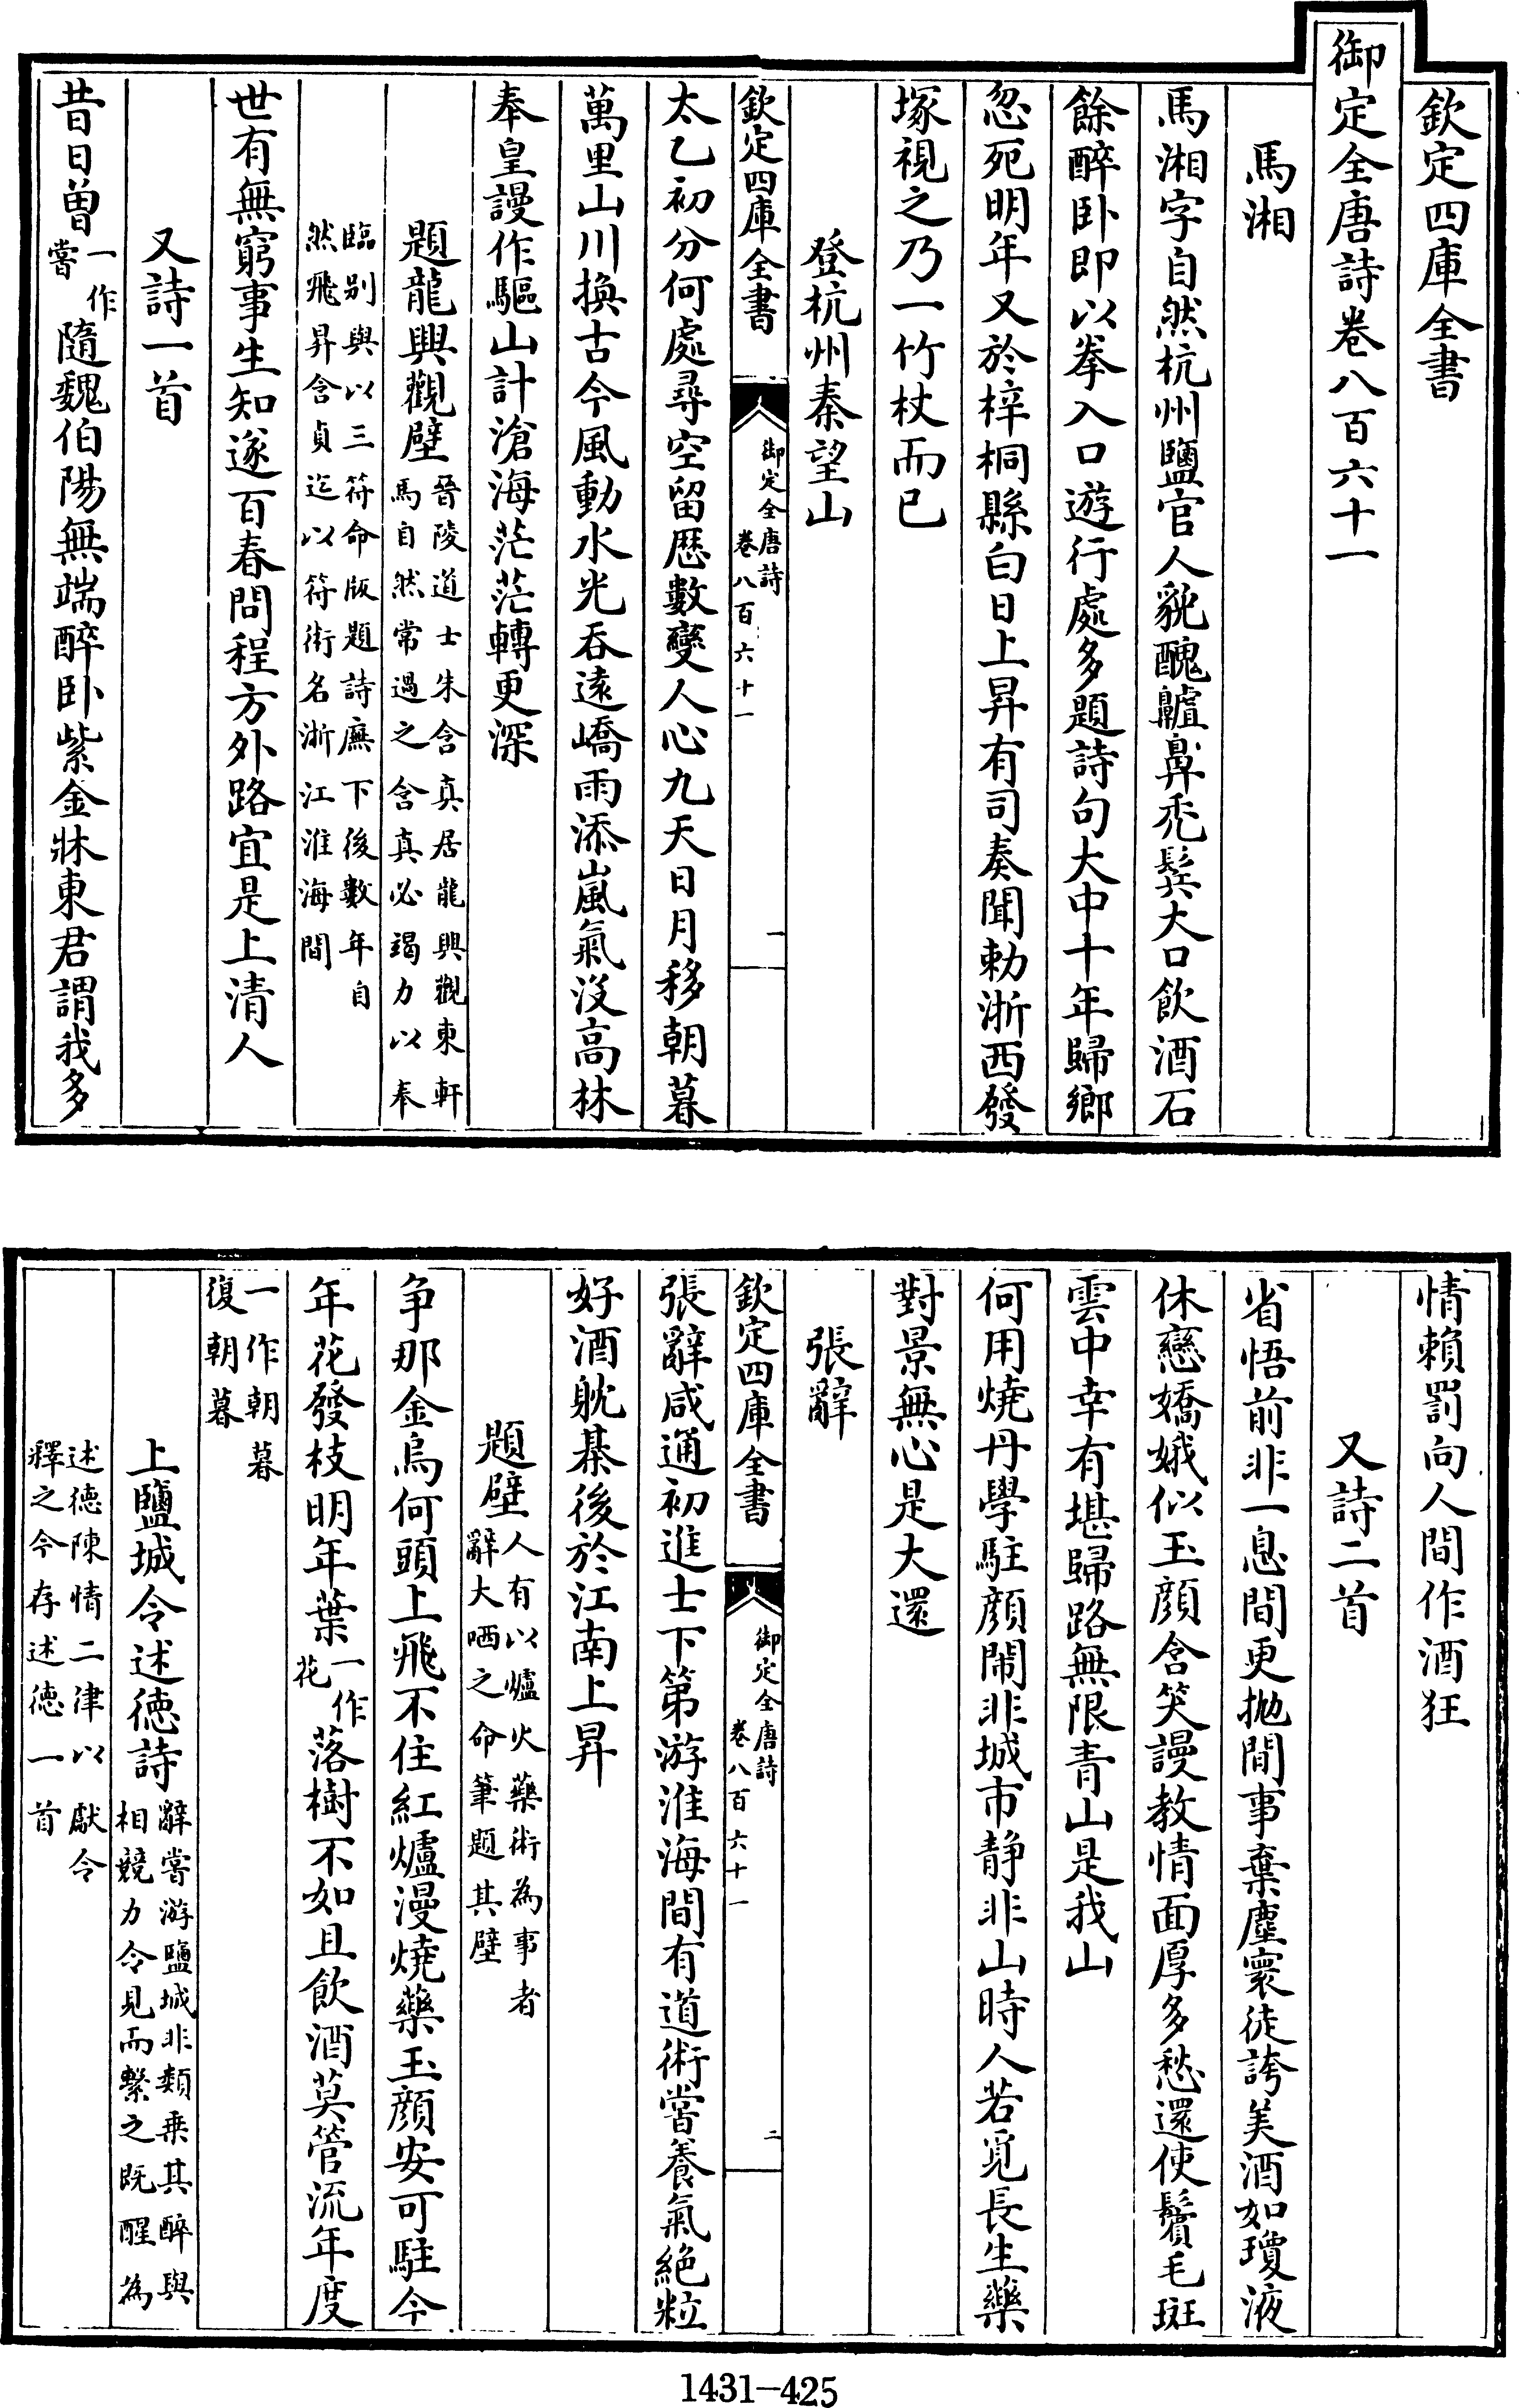 欽定四庫全書
御定全唐詩卷八百六十一
馬湘
馬湘字自然杭州鹽官人貌醜齇鼻禿鬂大口飲酒石
餘醉卧即以拳入口遊行處多題詩句大中十年歸鄉
忽死明年又於梓桐縣白日上昇有司奏聞勅浙西發
塚視之乃一竹杖而已
登杭州秦望山
太乙初分何處尋空留厯數變人心九天日月移朝暮
萬里山川換古今風動水光吞逺嶠雨添嵐氣沒高林
奉皇謾作驅山計滄海茫茫轉更深
題龍興觀壁晉陵道士朱含真居龍興觀東軒馬自然常過之含真必竭力以奉
臨别與以三符命版題詩廡下後數年自然飛昇含貞迄以符術名浙江淮海間
世有無窮事生知遂百春問程方外路宜是上清人
又詩一首
昔日曽一作嘗隨魏伯陽無端醉卧紫金牀東君謂我多
欽定四庫全書
御定全唐詩
卷八百六十一
一
情賴罰向人間作酒狂
又詩二首
省悟前非一息間更抛閒事棄塵寰徒誇美酒如瓊液
休戀嬌娥似玉顔含笑謾教情面厚多愁還使鬢毛斑
雲中幸有堪歸路無限青山是我山
何用燒丹學駐顔鬧非城市静非山時人若覓長生藥
對景無心是大還
張辭
張辭咸通初進士下第游淮海間有道術嘗養氣絶粒
好酒躭棊後於江南上昇
題壁人有以爐火藥術為事者辭大哂之命筆題其壁
争那金烏何頭上飛不住紅爐漫燒藥玉顔安可駐今
年花發枝明年葉一作花落樹不如且飲酒莫管流年度
一作朝暮復朝暮
上鹽城令述徳詩辭嘗游鹽城非類乗其醉與相競力令見而繫之既醒為
述徳陳情二律以獻令釋之今存述徳一首
欽定四庫全書
御定全唐詩
卷八百六十一
二
1431-425